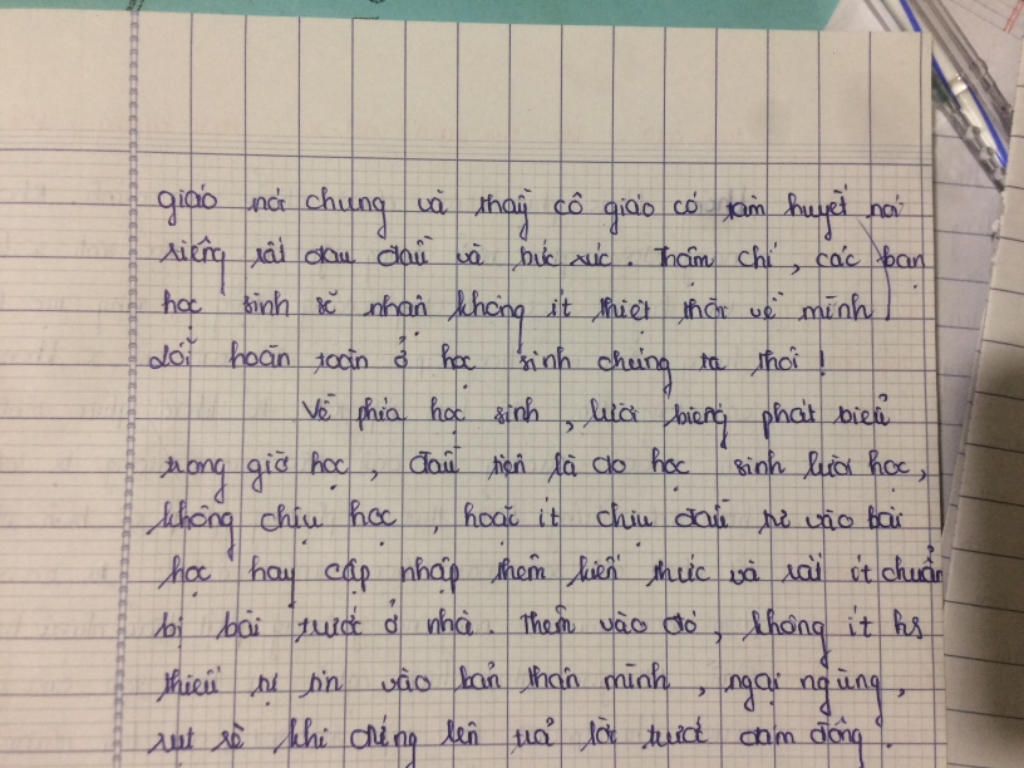 giáo nói chung và thầy cô giáo có tâm huyết nói
riêng rất đau đầu và bức xúc. Thậm chí, các bạn
học sinh sẽ nhận không ít thiệt thòi về mình
dối hoãn toàn ở học sinh chúng ta thôi!
Về phía học sinh, lười biếng phát biểu
trong giờ học, đầu tiên là do học sinh lười học,
không chịu học, hoặc ít chịu đầu tư vào bài
học hay cập nhập thêm kiến thức và rất ít chuẩn
bị bài trước ở nhà. Thêm vào đó, không ít hs
thiếu tự tin vào bản thân mình, ngại ngùng,
rụt rè khi đứng lên trả lời trước đám đông.